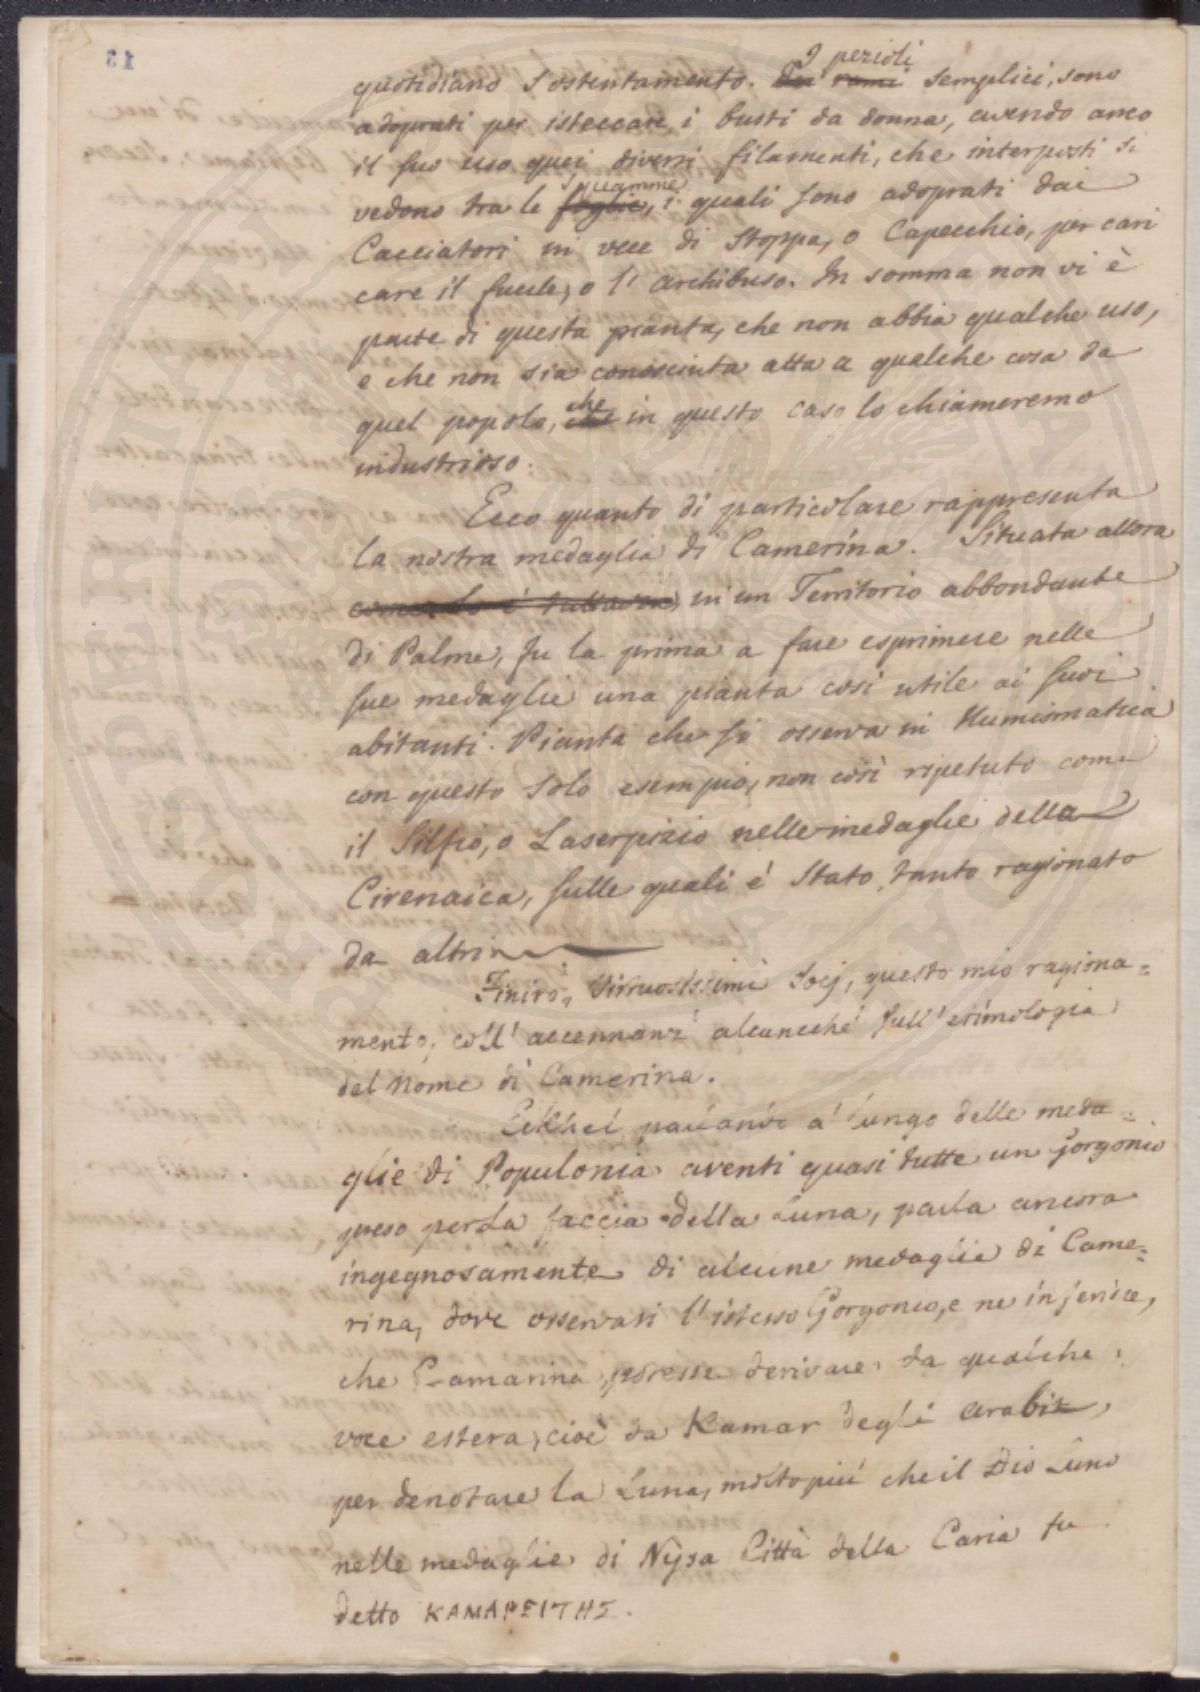 13
quotidiano sostentamento. I pezioli semplici, sono
adoprati per isteccare i busti da donna, avendo anco
il suo uso quei diversi filamenti, che interposti si
vedono tra le squamme, i quali sono adoprati dai
Cacciatori in vece di stoppa, o Capecchio, per cari
care il fucile, o l'archibuso. In somma non vi è
parte di questa pianta, che non abbia qualche uso,
e che non sia conosciuta atta a qualche cosa da
quel popolo, che in questo caso lo chiameremo
industrioso.
Ecco quanto di particolare rappresenta
la nostra medaglia di Camerina. Situata allora
in un Territorio abbondante
di Palme, fu la prima a fare esprimere nelle
sue medaglie una pianta così utile ai suoi
abitanti. Pianta che si osserva in Numismatica
con questo solo esempio, non così ripetuto come
il Silfio, o Laserpizio nelle medaglie della
Cirenaica, sulle quali é stato tanto ragionato
da altri
Finirò, Virtuosissimi Socj, questo mio ragiona=
mento, coll' accennarvi alcunché sull' etimologia
del Nome di Camerina.
Eckhel parlando a lungo delle meda=
glie di Populonia aventi quasi tutte un Gorgonio
preso per la faccia della Luna, parla ancora
ingegnosamente di alcune medaglie di Came=
rina, dove osservasi l'istesso Gorgonio, e ne inferisce,
che Camarina potesse derivare da qualche
voce estera, cioè da Kamar degli Arabi,
per denotare la Luna, molto più che il Dio Luno
nelle medaglie di Nysa Città della Caria fu
detto ΚΑΜΑΡΕΙΤΗΣ.